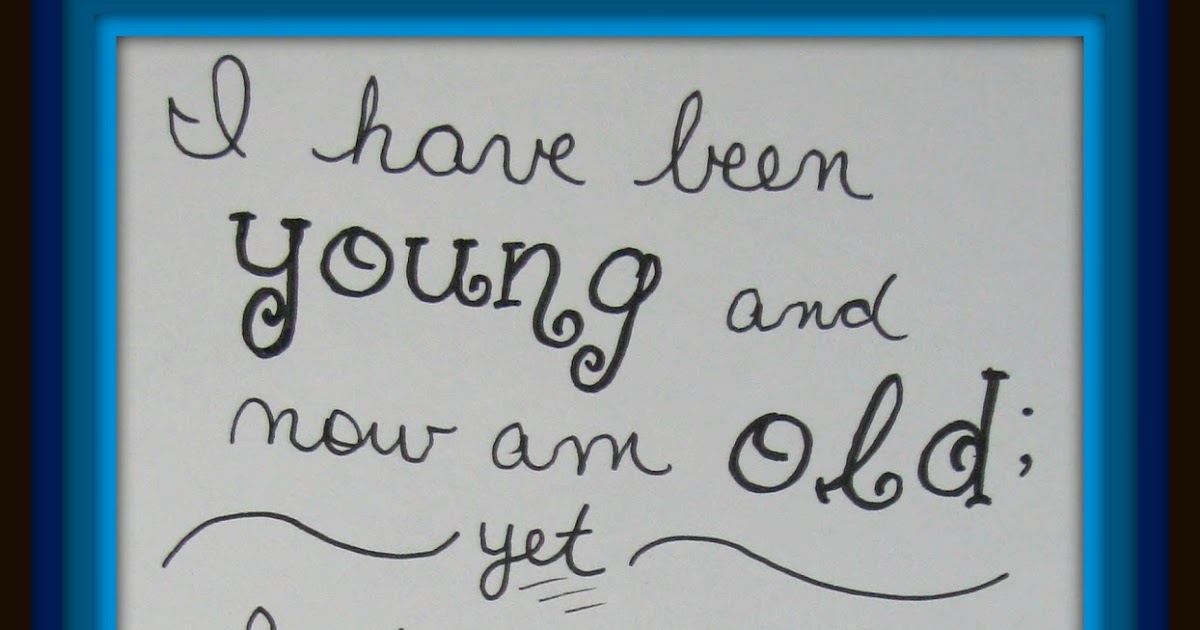 I have been
young and
now am old;
yet